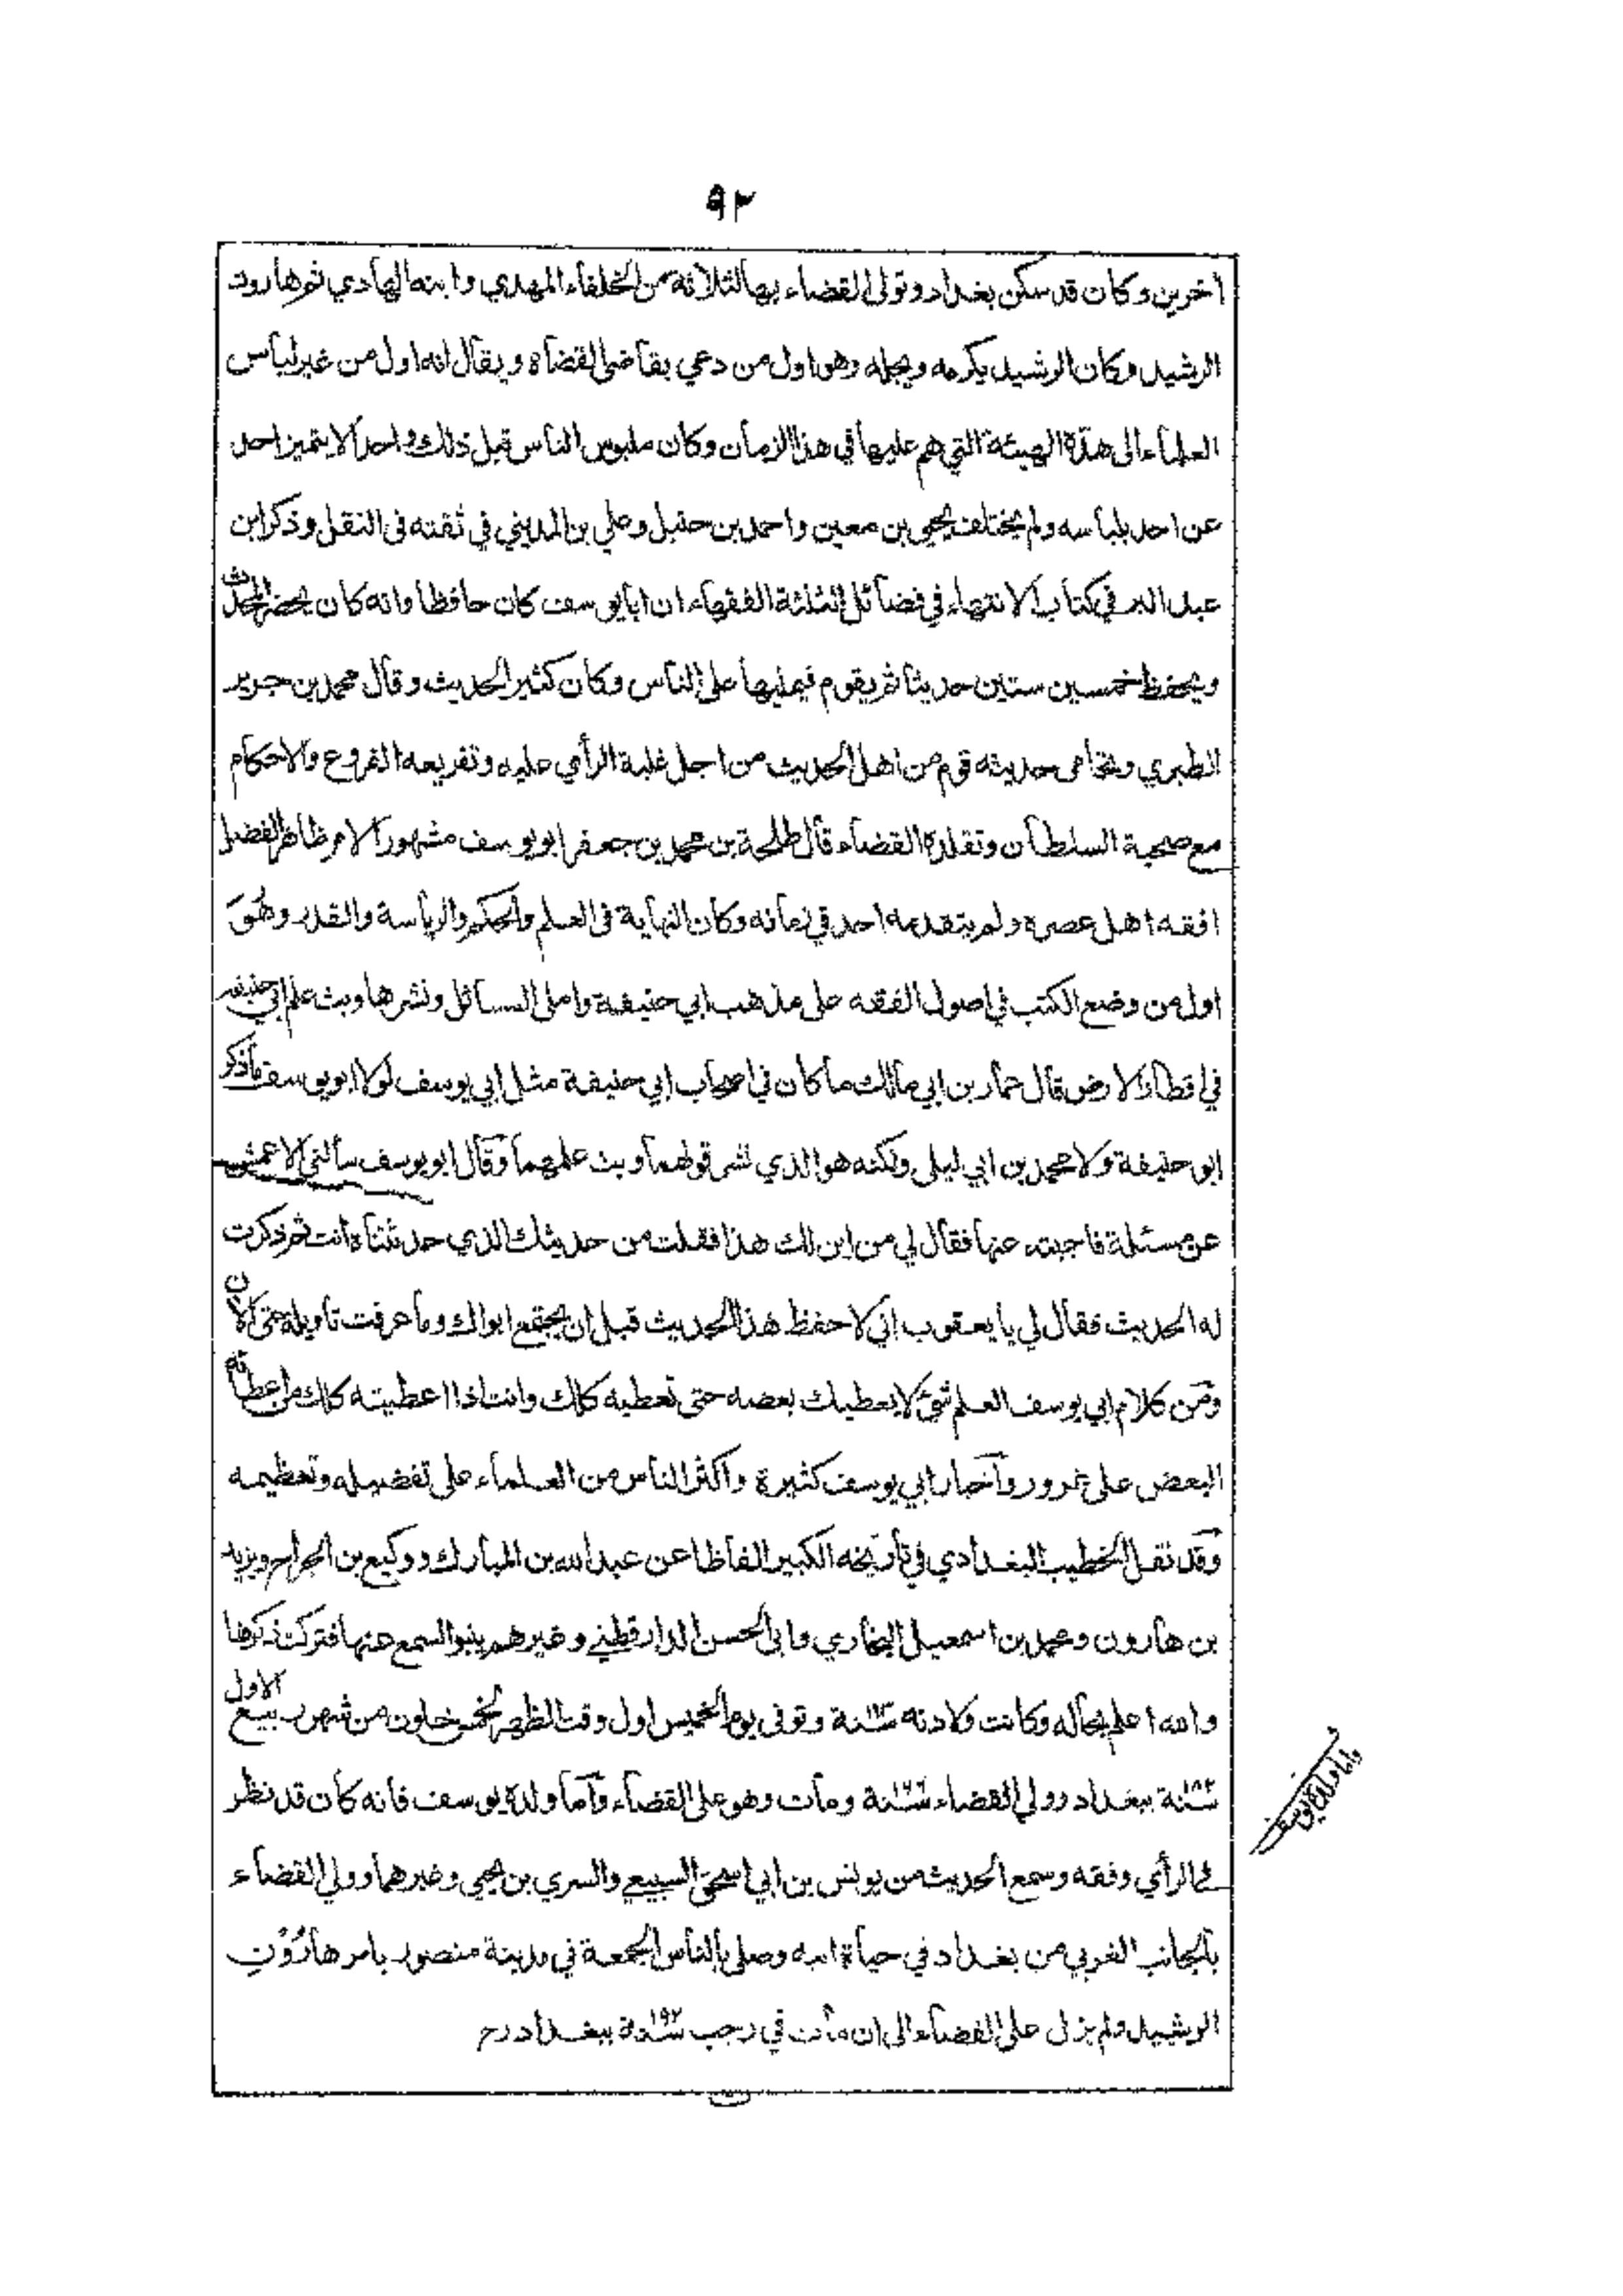 ٩٢
اخرين وكان قد سكن بغداد وتولى القضاء بها لثلاثة من الخلفاء المهدي وابنه الهادي ثم هارون
الرشيد وكان الرشيد يكرمه ويجله وهو اول من دعي بقاضى القضاة ويقال انه اول من غير لباس
العلماء الى هذه الهيئة التي هم عليها في هذا الزمان وكان ملبوس الناس قبل ذلك واحدا لا يتميز احد
عن احد بلباسه ولم يختلف يحيى بن معين واحمد بن حنبل وعلي بن المديني في ثقته فى النقل وذكر ابن
عبد البر في كتاب الانتهاء في فضائل الثلثة الفقهاء ان ابا يوسف كان حافظا وانه كان يحضر المحدث
ويحفظ خمسين ستين حديثا ثم يقوم فيمليها على الناس وكان كثير الحديث وقال محمد بن جرير
الطبري وتحامى حديثه قوم من اهل الحديث من اجل غلبة الرأي عليه وتفريعه الفروع والاحكام
مع صحبة السلطان وتقلده القضاء قال طلحة بن محمد بن جعفر ابو يوسف مشهور الامر ظاهر الفضل
افقه اهل عصره ولم يتقدمه احد في زمانه وكان النهاية فى العلم والحكم والرياسة والقدر وهُوَ
اول من وضع الكتب في اصول الفقه على مذهب ابي حنيفة واملى المسائل ونشرها وبث علم ابي حنيفه
في اقطار الارض قال عمار بن ابي مالك ما كان في اصحاب ابي حنيفة مثل ابي يوسف لولا ابو يوسف ما ذكر
ابو حنيفة ولا محمد بن ابي ليلى ولكنه هو الذي نشر قولهما وبث علمهما وقال ابو يوسف سألني الاعمش
عن مسئلة فاجبته عنها فقال لي من اين لك هذا فقلت من حديثك الذي حدثتناه انت ثم ذكرت
له الحديث فقال لي يا يعقوب اني لاحفظ هذا الحديث قبل ان يجتمع ابواك وما عرفت تأويله حتى الان
ومن كلام ابي يوسف العلم شئ لا يعطيك بعضه حتى تعطيه كلك وانت اذا اعطيته كلك من اعطائه
البعض على غرور واخبار ابي يوسف كثيرة واكثر الناس من العلماء على تفضيله وتعظيمه
وقد نقل الخطيب البغدادي في تاريخه الكبير الفاظا عن عبد الله بن المبارك ووكيع بن الجراح ويزيد
بن هارون ومحمد بن اسمعيل البخاري وابي الحسن الدارقطني وغيرهم ينبو السمع عنها فتركت ذكرها
والله اعلم بحاله وكانت ولادته سنة ١١٣ وتوفى يوم الخميس اول وقت الظهر لخمس خلون من شهر ربيع الاول
سنة ١٨٢ ببغداد وولي القضاء سنة ١٦٦ ومات وهو على القضاء واما ولده يوسف فانه كان قد نظر
في الرأي وفقه وسمع الحديث من يونس بن ابي اسحق السبيعي والسري بن يحيى وغيرهما وولي القضاء
بالجانب الغربي من بغداد في حياة ابيه وصلى بالناس الجمعة في مدينة منصور بامر هارُوْنِ
الرشيد ولم يزل على القضاء الى ان مات في رجب سنة ١٩٢ ببغداد رح